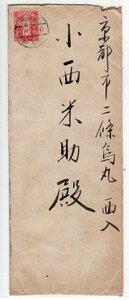 京都市二條烏丸西入
小西米助殿